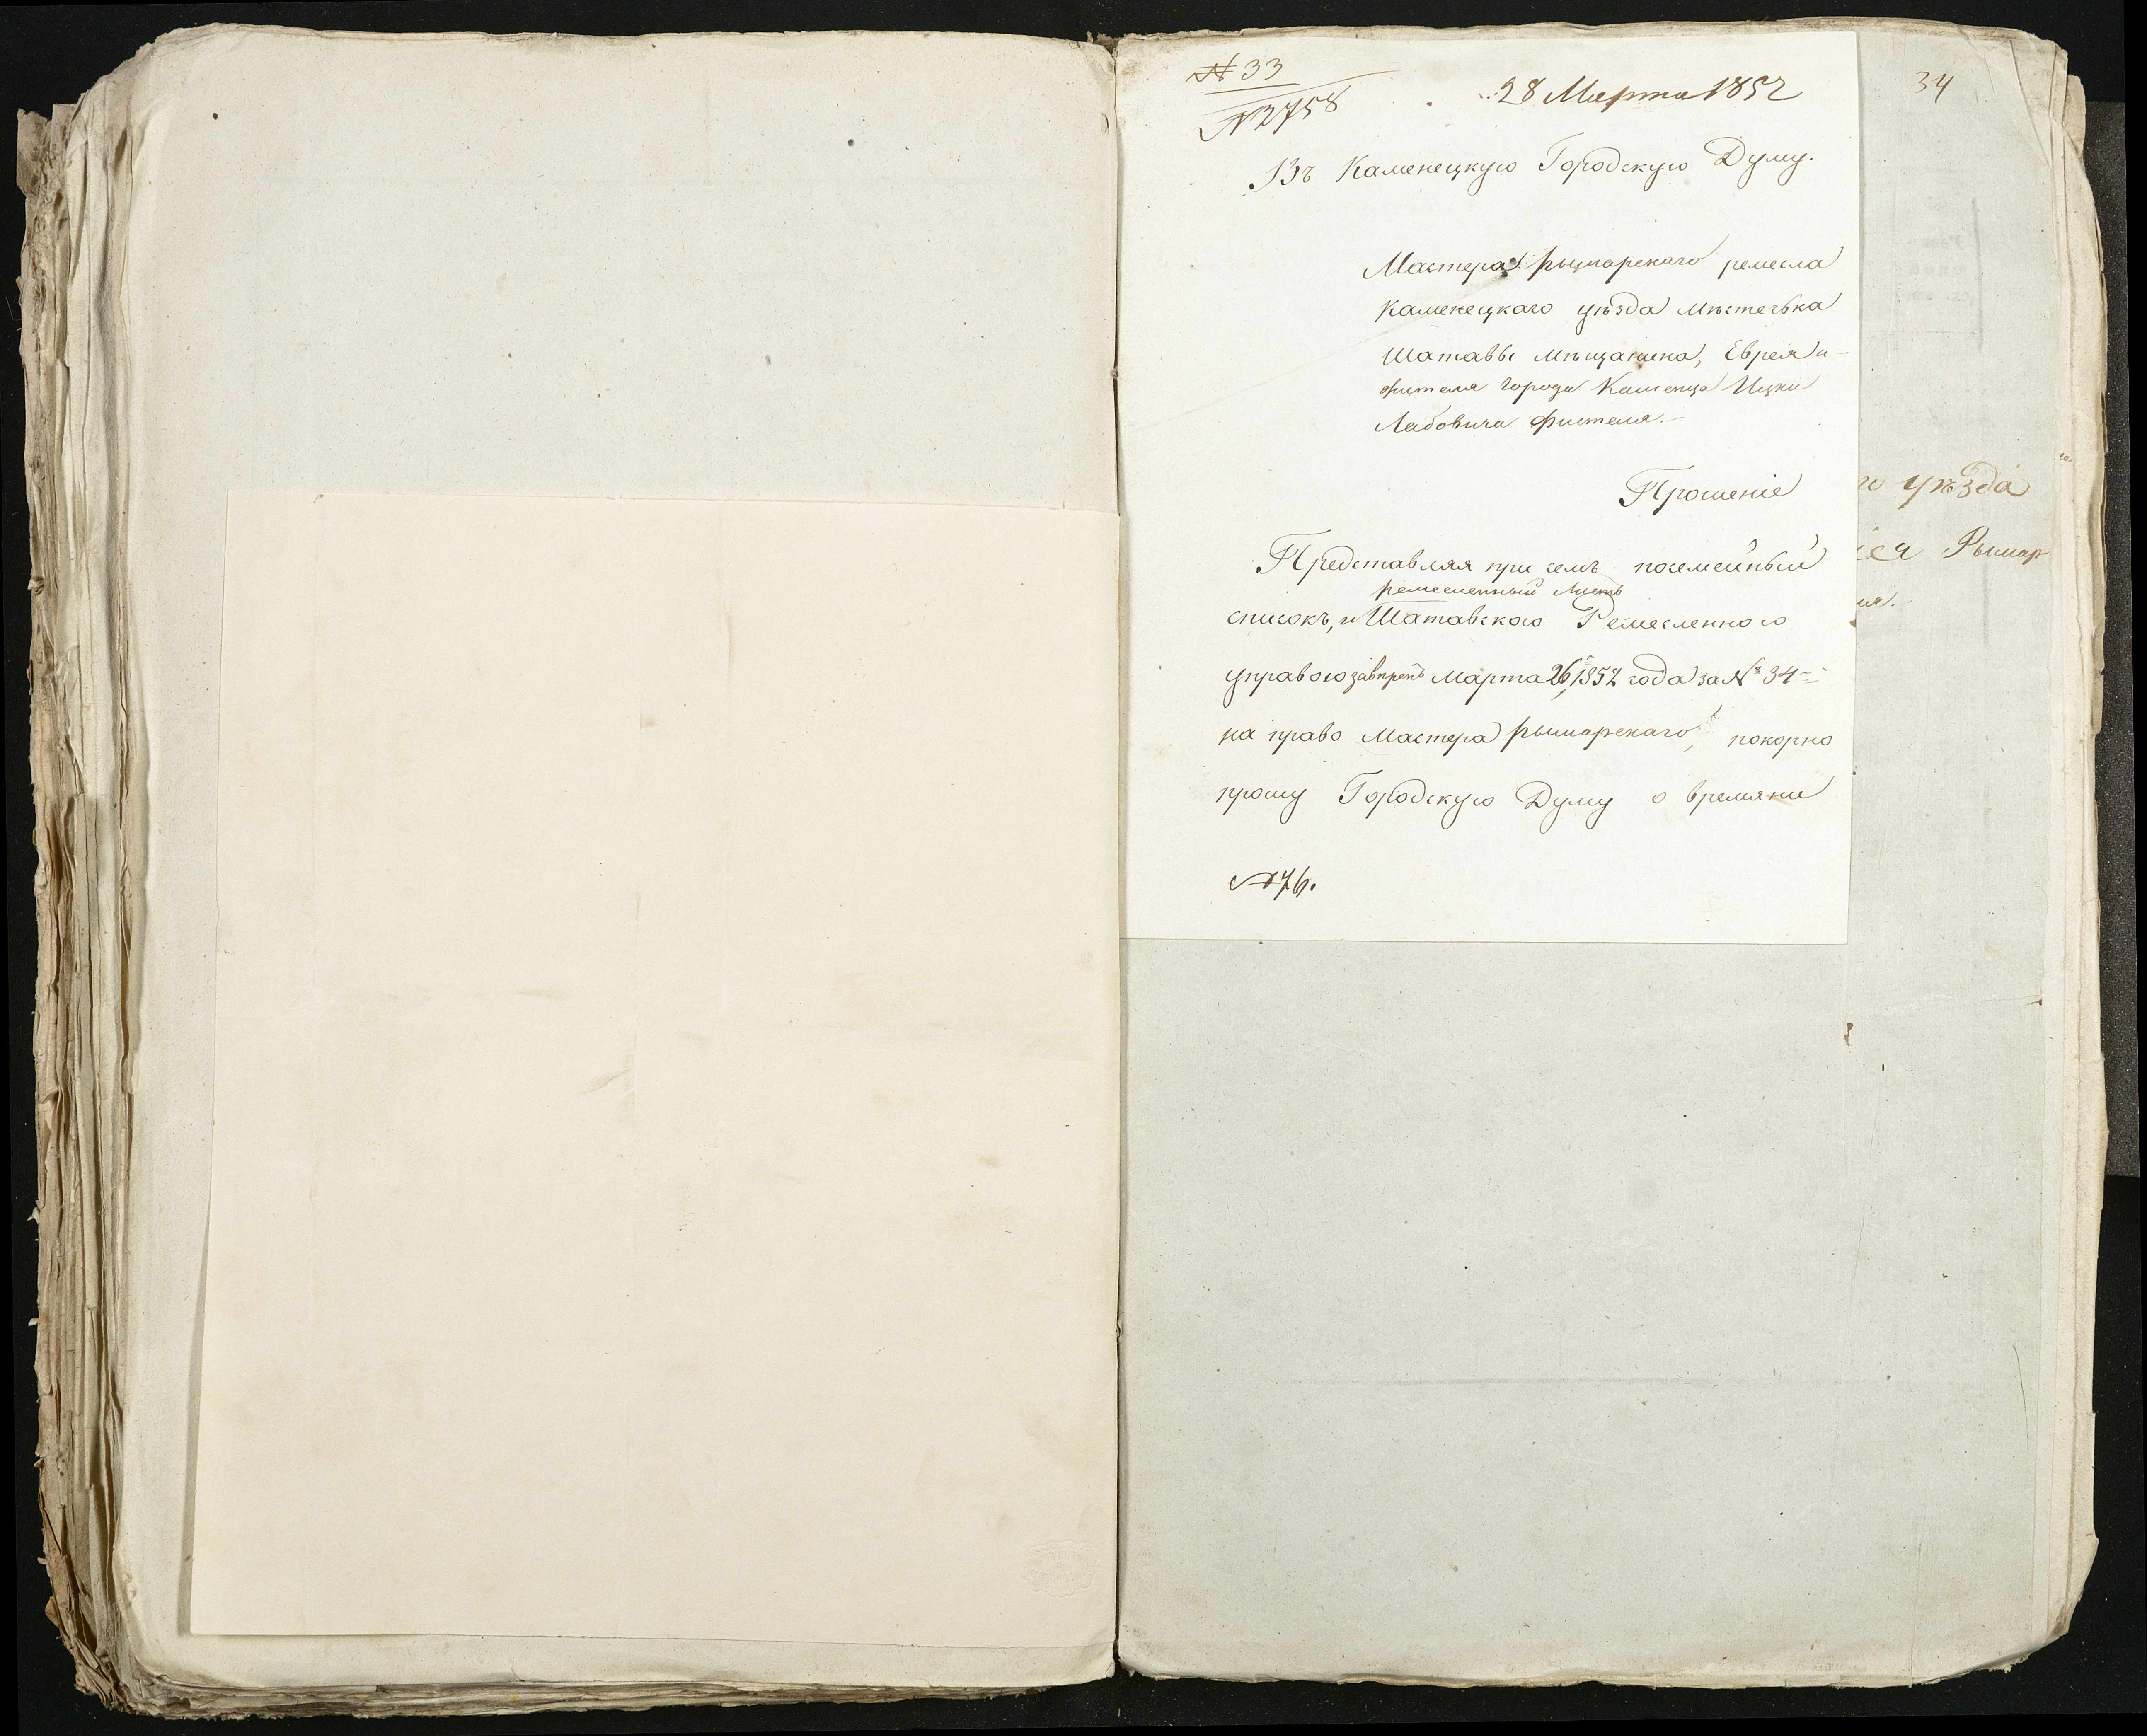 № 33
№ 2758
28 Марта 1852
34
Въ Каменецкую Городскую Думу.
Мастера рымарскаго ремесла
Каменецкаго уѣзда мѣстечька
Шатавы мѣщанина, Еврея и
жителя города Каменца Ицки
Лабовича Фителя.
Прошеніе
Представляя при семъ посемейный
ремесленный Листъ
списокъ, и Шатавского Ремесленного
управою Марта 26, 1852 года за № 34
на право Мастера рымарскаго, покорно
прошу Городскую Думу о времяни
№ 76.
го уѣзда
Рымар